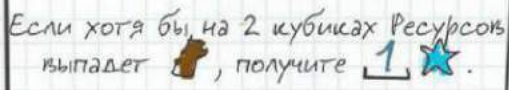 Если хотя бы на 2 кубиках Ресурсов
выпадет , получите 1 .